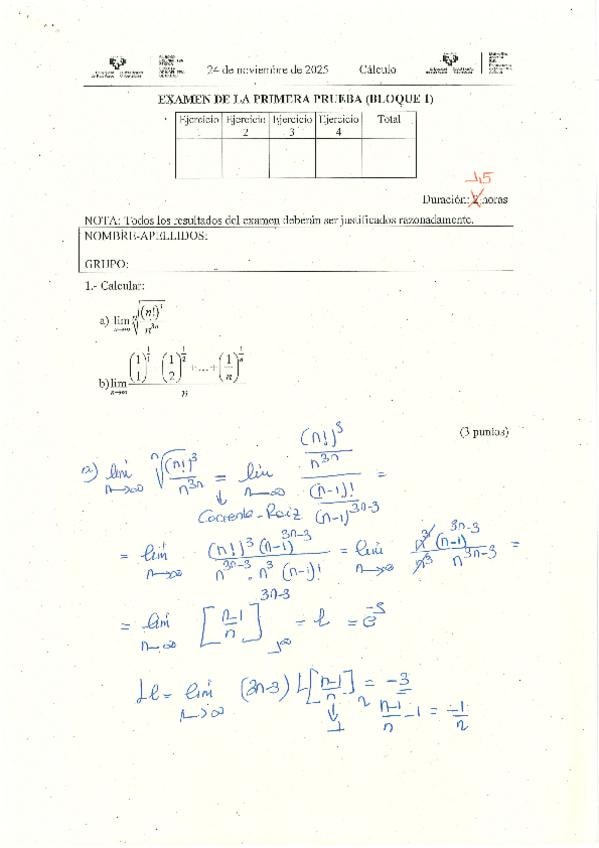 24 de noviembre de 2025 Cálculo
EXAMEN DE LA PRIMERA PRUEBA (BLOQUE 1)
Ejercicio 1 Ejercicio 2 Ejercicio 3 Ejercicio 4 Total
1,5
Duración: 2 horas
NOTA: Todos los resultados del examen deberán ser justificados razonadamente.
NOMBRE-APELLIDOS:
GRUPO:
1.- Calcular:
a) lim n→∞ ⁿ√((n!)³/n³ⁿ)
b) lim n→∞ ((1/1)^(1/1) (1/2)^(1/2) +...+ (1/n)^(1/n)) / n
(3 puntos)
a) lim n→∞ ⁿ√((n!)³/n³ⁿ) = lim n→∞ ((n!)³/n³ⁿ) / ((n-1)!/(n-1)³ⁿ⁻³) =
↓
Cociente-Raiz
= lim n→∞ (n!)³ (n-1)³ⁿ⁻³ / (n³ⁿ⁻³ · n³ (n-1)!) = lim n→∞ n³ (n-1)³ⁿ⁻³ / (n³ n³ⁿ⁻³) =
= lim n→∞ [(n-1)/n]³ⁿ⁻³ 1^∞ = l = e⁻³
Ll = lim n→∞ (3n-3) L[(n-1)/n] = -3
↓
1
(n-1)/n - 1 = -1/n